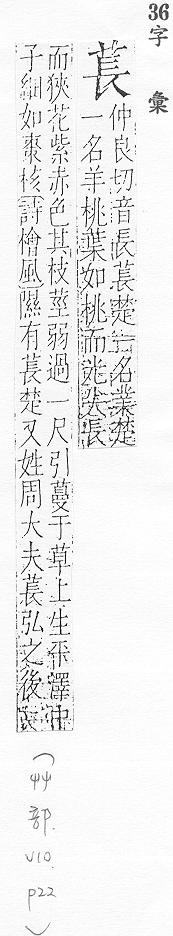 36
字彙
萇
仲良切音長萇楚一名業楚
一名羊桃葉如桃而光尖長
而狹花紫赤色其枝莖弱過一尺引蔓于草上生平澤中
子細如棗核詩檜風隰有萇楚又姓周大夫萇弘之後
(艸部.
V10.
P22)